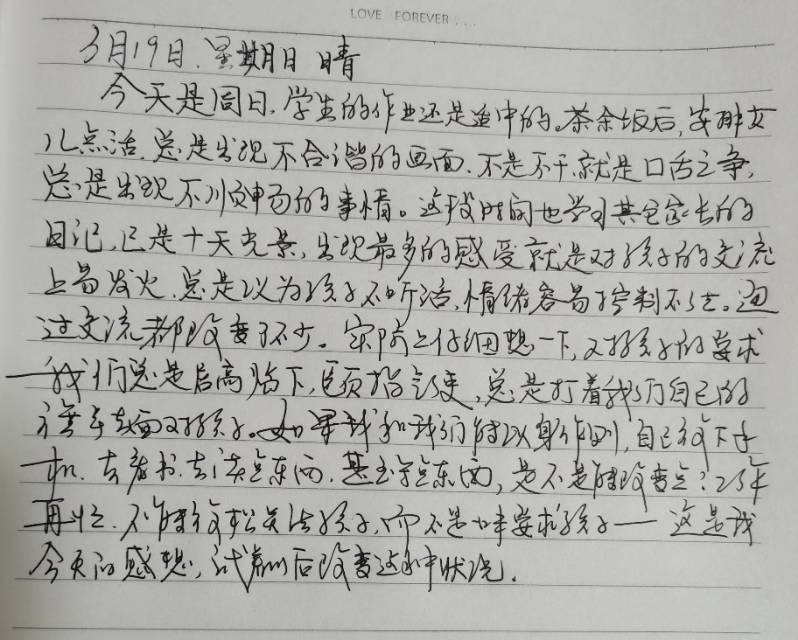 LOVE FOREVER...
3月19日.星期日 晴
今天是周日,学生的作业还是适中的。茶余饭后,安排女
儿点活,总是出现不合谐的画面.不是不干,就是口舌之争,
总是出现不顺畅的事情。这段时间也学习其它家长的
日记,已是十天光景,出现最多的感受就是对孩子的交流
上易发火.总是以为孩子不听话,情绪容易控制不住。通
过交流都改变了不少。实际上仔细想一下,对孩子的要求
我们总是居高临下,颐指气使,总是打着我们自己的
去面对孩子。如果我和我们能以身作则,自己放下手
机.去看书.去读点东西.甚至写点东西,是不是能改变点?
再忙.不能放松关注孩子,而不是要求孩子——这是我
今天的感想,试着以后改变这种状况.